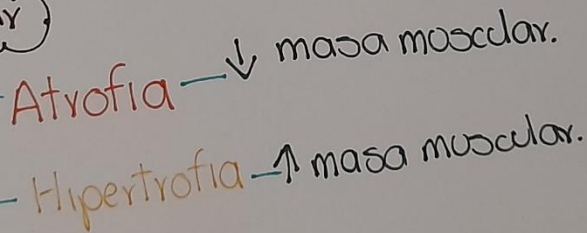 - Atrofia - ↓ masa moscular.
- Hipertrofia - ↑ masa muscular.